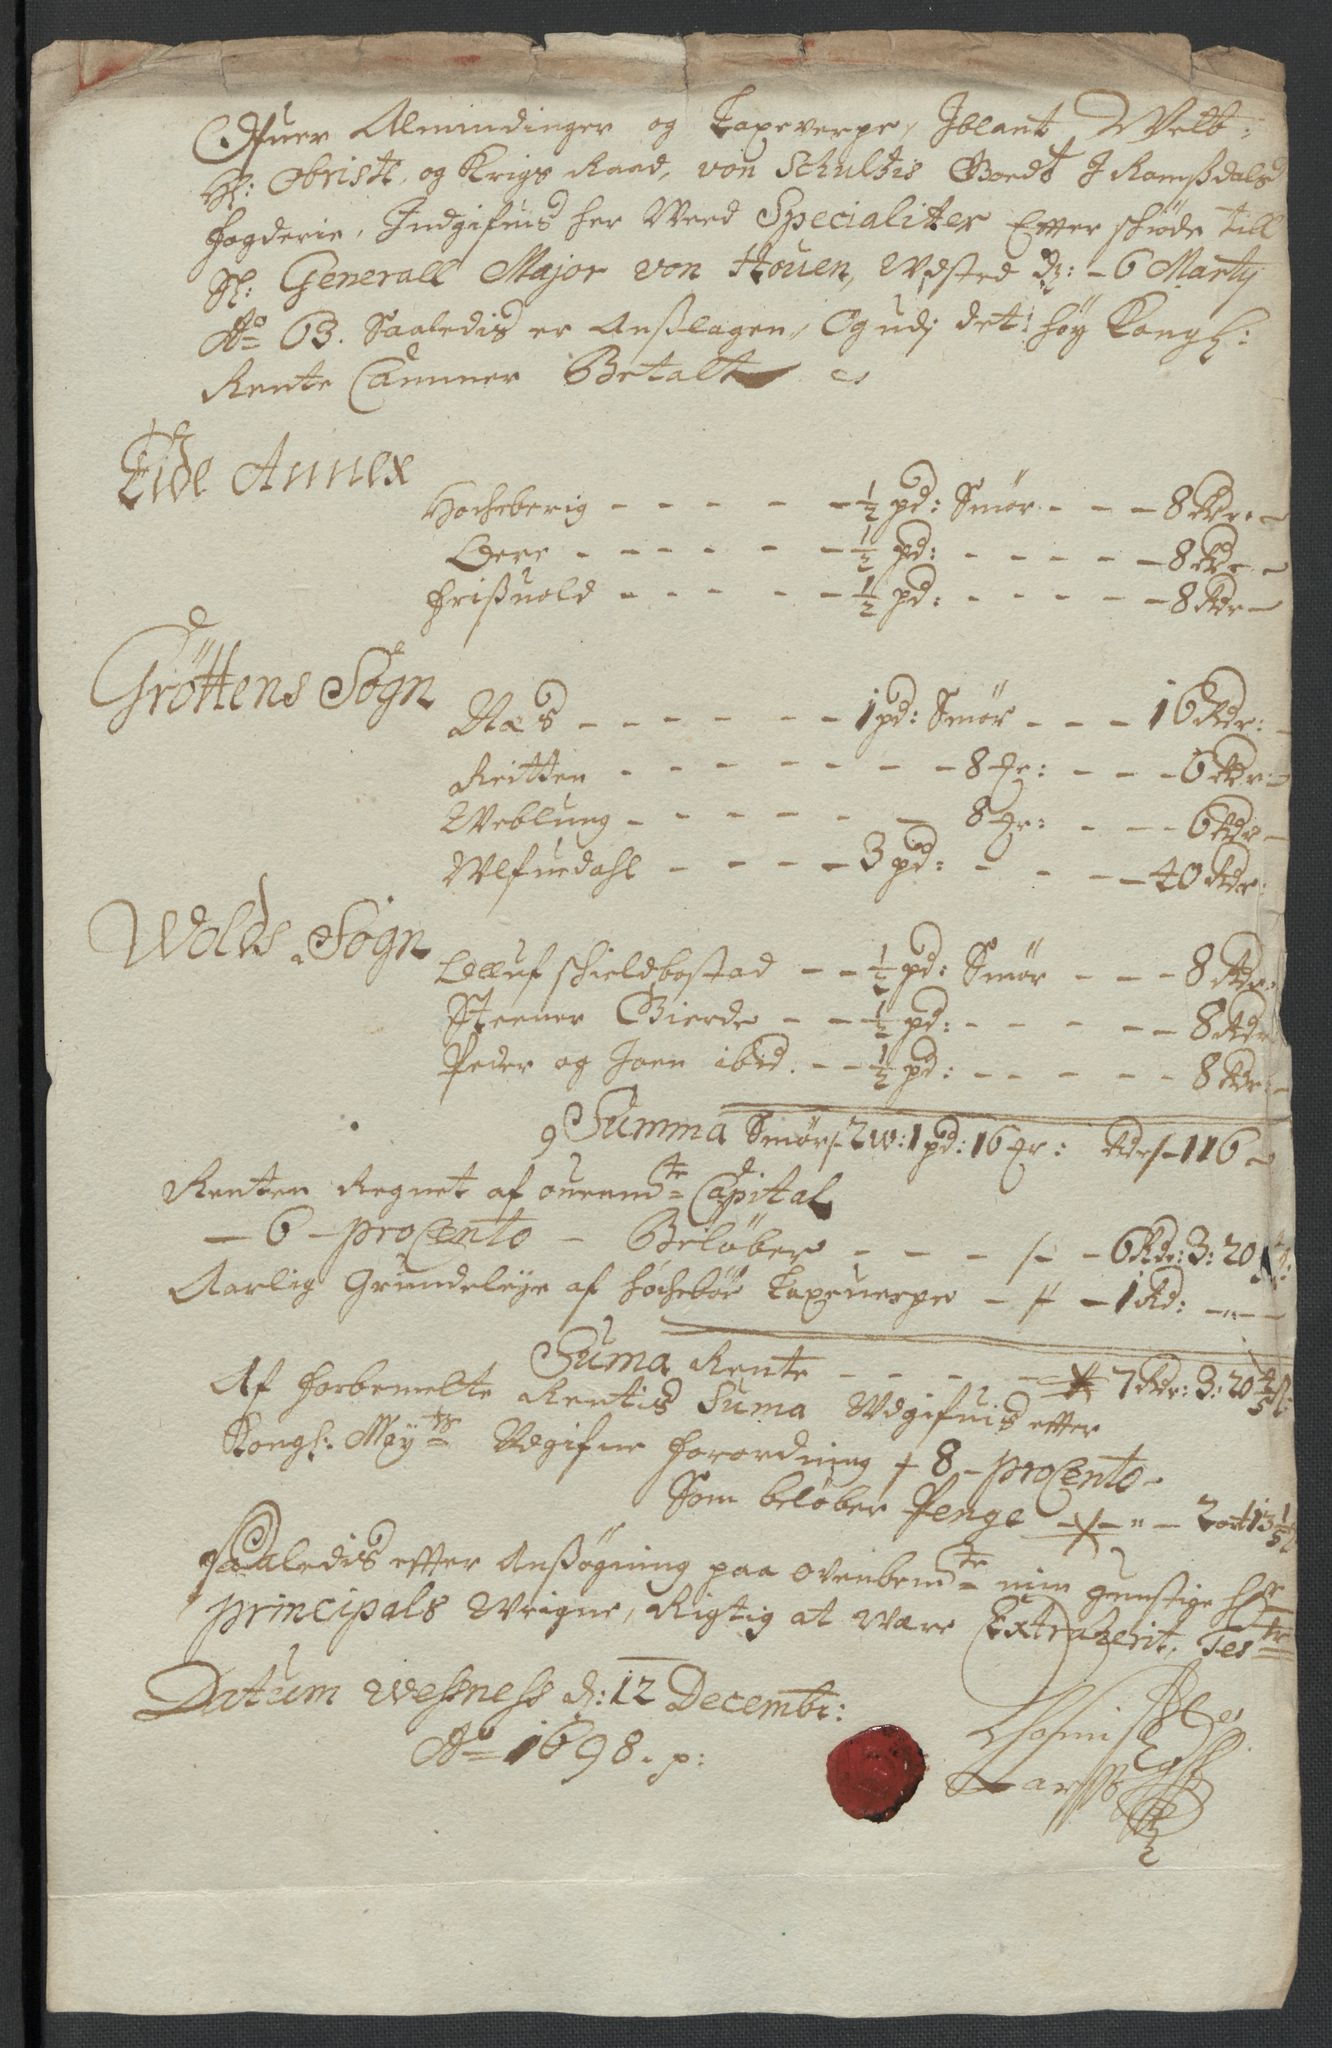 Ofuer Almindinger og Laxeverpe, Iblant Welb:
Hr: Obriste, og Krigs Raad, von Schultzis Goedz J Romßdals
fogderie, Indgifuis her Meed Specialiter Effter skiøde till
Sl: Generall Major von Houen, Udsted dz: - 6 Marty
Ao 63. Saaledis er Anßlagen, Og udj det høy Kongl:
Rente Cammer Betalt
Eide Annex
Hocheberig - - - - - ½ pd: Smør - - - 8 Rdr -
Øere - - - - - ½ pd: - - - - - 8 Rdr -
Frißuold - - - - - ½ pd: - - - - - 8 Rdr -
Gröttens Sogn
Næs - - - - - - 1 pd: Smør - - - 16 Rdr: -
Reitten - - - - - - - 8 Mr: - - - 6 Rdr -
Weblung - - - - - - 8 Mr: - - - 6 Rdr -
Ulfuedahl - - - - 3 pd: - - - - 40 Rdr:
Wolds Sogn
Olluf Skieldbostad - - ½ pd: Smør - - - 8 Rdr -
Steener Gierde - - ½ pd: - - - - - 8 Rdr
Peder og Joen ibid. - - ½ pd: - - - - - 8 Rdr: -
Summa Smør - 2 w: 1 pd: 16 Mr: Rdr - 116 -
Renten Regnet af ouenmte Capital
- 6 - procento - Beløber - - - - 6 Rdr: 3: 20
Aarlig Grundeleye af Hochebør Laxeuerpe - - 1 Rd: - " -
Suma Rente - - - - - 7 Rdr: 3: 20 4/5 s:
Af forbemelte Rentis Suma Udgifuis effter
Kongl: Maytz Udgifne forordning - 8 - procento -
Som beløber Penge - " - 2 ort 13 1/5 s
Saaledis effter Anßøgning paa ovenbemte min gunstige Hr
Principals Weigne, Rigtig at være Extraherit, Teste
Datum Weßneß d: 12 Decembr:
Ao 1698. p: